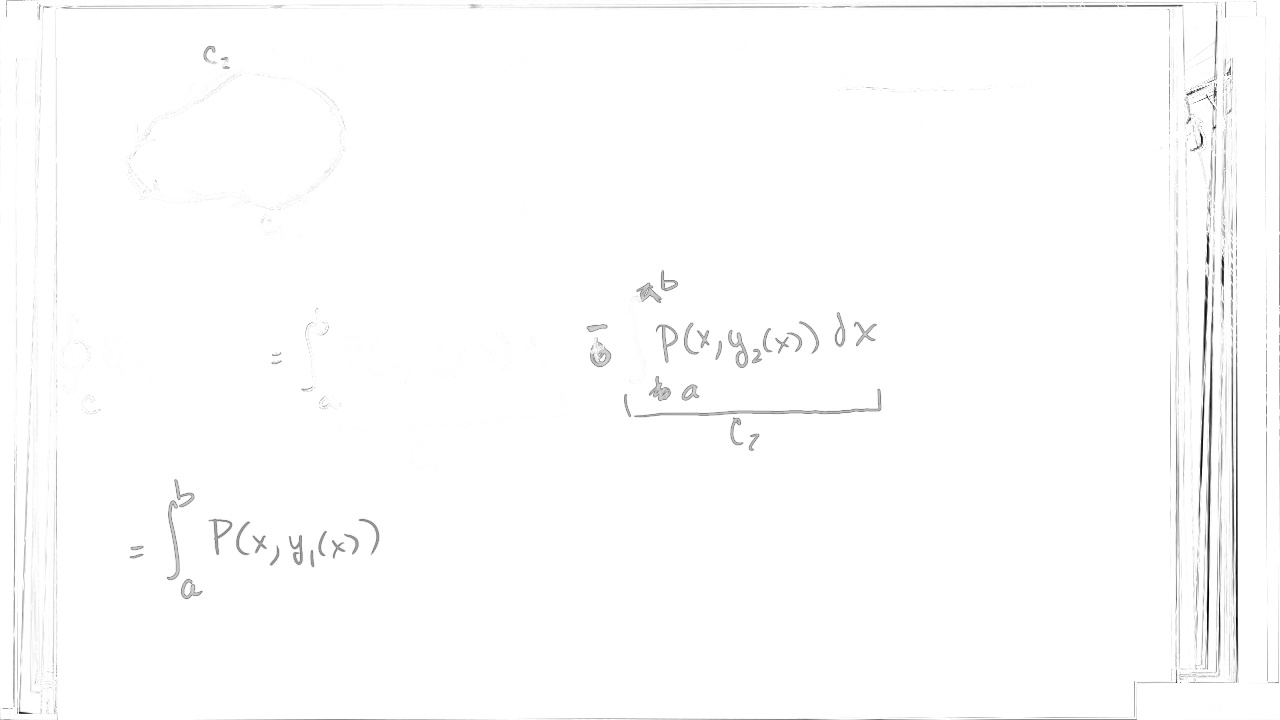 C₂
= ∫ₐᵇ − ∫ₐᵇ P(x, y₂(x)) dx
C₂
= ∫ₐᵇ P(x, y₁(x))